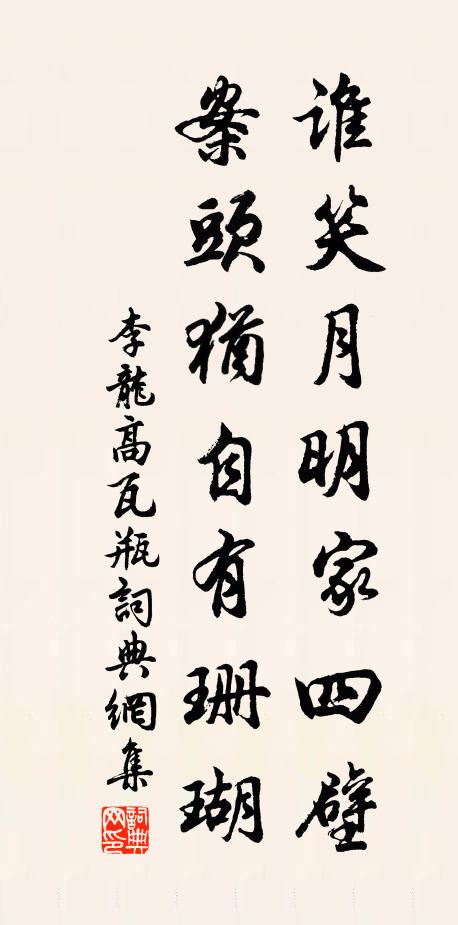 誰笑月明家四壁
案頭猶自有珊瑚
李龍高瓦瓶詞典網集
詞典网印